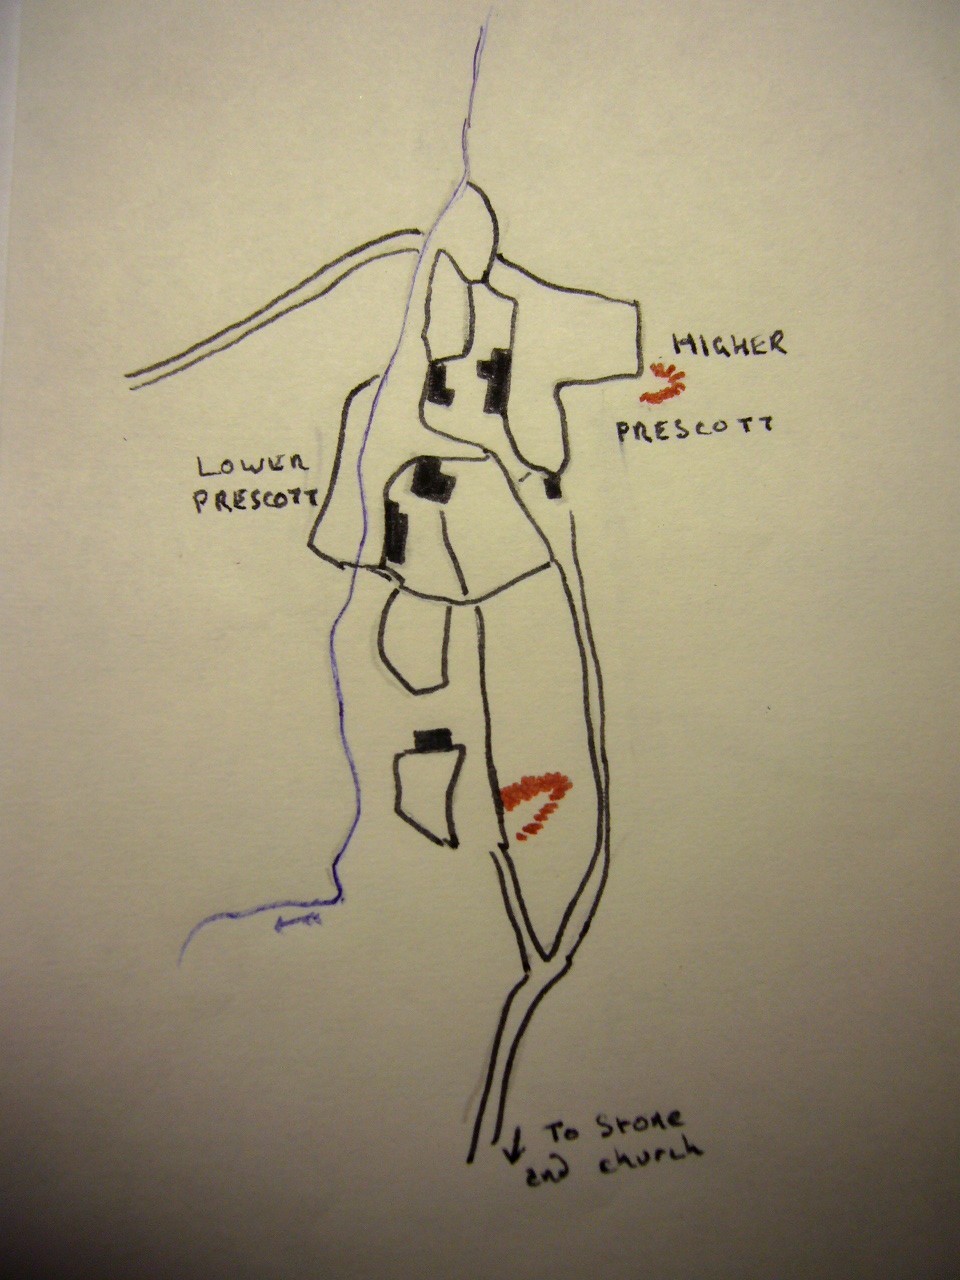 HIGHER
PRESCOTT
LOWER
PRESCOTT
To Stone
and church